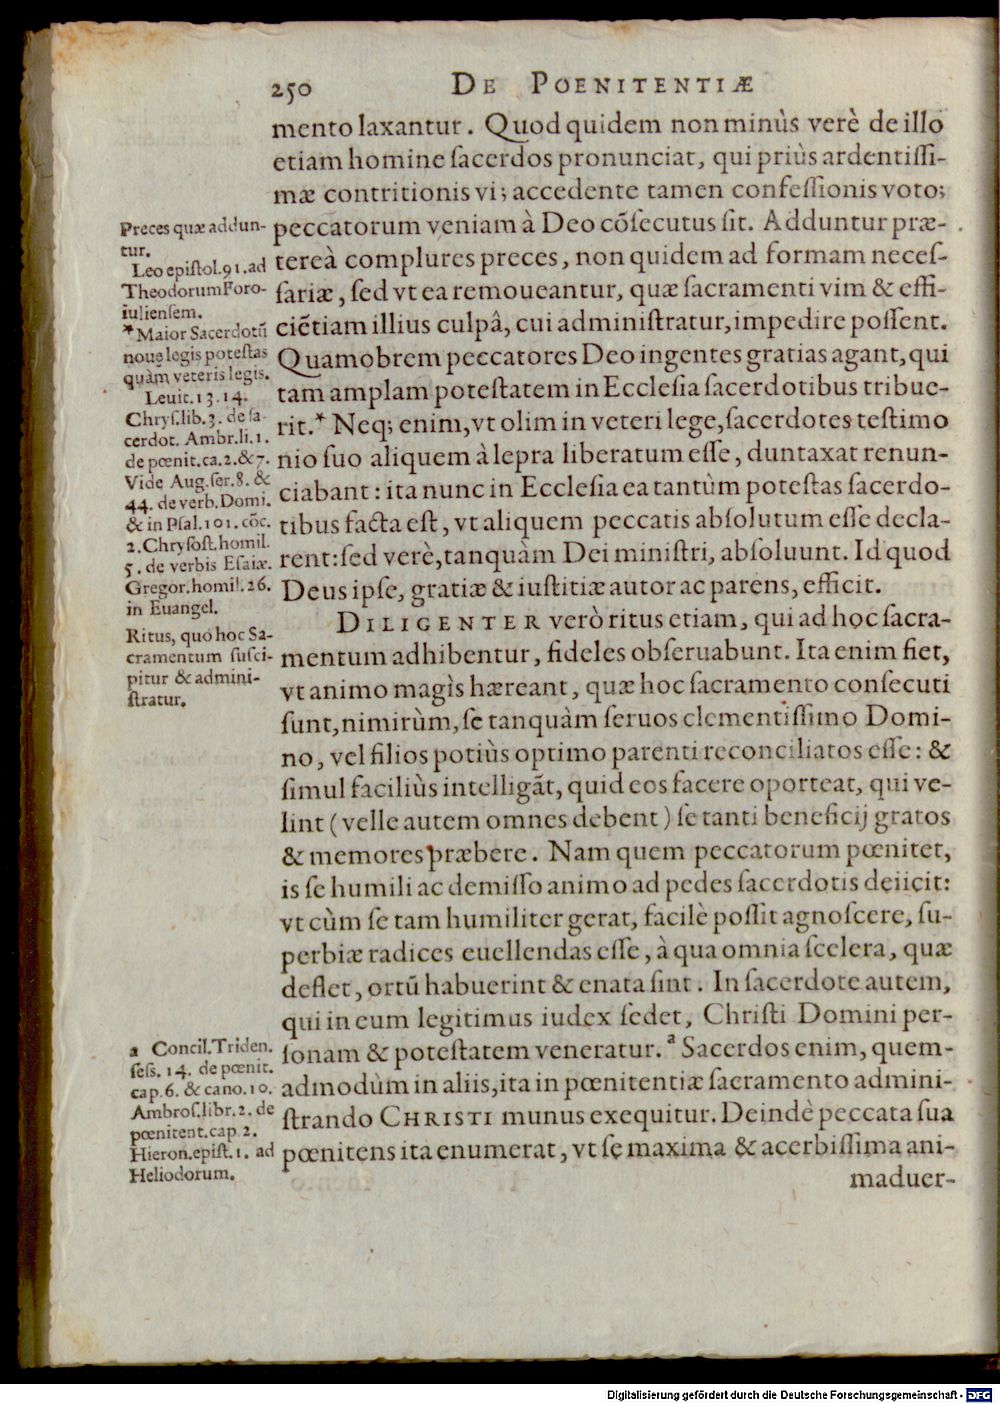 250 DE POENITENTIÆ
mento laxantur. Quod quidem non minùs verè de illo
etiam homine ſacerdos pronunciat, qui priùs ardentiſſi-
mæ contritionis vi; accedente tamen confeſſionis voto;
peccatorum veniam à Deo cõſecutus ſit. Adduntur præ-
tereà complures preces, non quidem ad formam neceſ-
ſariæ, ſed vt ea remoueantur, quæ ſacramenti vim & effi-
ciẽtiam illius culpâ, cui adminiſtratur, impedire poſſent.
Quamobrem peccatores Deo ingentes gratias agant, qui
tam amplam poteſtatem in Eccleſia ſacerdotibus tribue-
rit.* Neq; enim, vt olim in veteri lege, ſacerdotes teſtimo
nio ſuo aliquem à lepra liberatum eſſe, duntaxat renun-
ciabant: ita nunc in Eccleſia ea tantùm poteſtas ſacerdo-
tibus facta eſt, vt aliquem peccatis abſolutum eſſe decla-
rent: ſed verè, tanquàm Dei miniſtri, abſoluunt. Id quod
Deus ipſe, gratiæ & iuſtitiæ autor ac parens, efficit.
DILIGENTER verò ritus etiam, qui ad hoc ſacra-
mentum adhibentur, fideles obſeruabunt. Ita enim fiet,
vt animo magìs hæreant, quæ hoc ſacramento conſecuti
ſunt, nimirùm, ſe tanquàm ſeruos clementiſſimo Domi-
no, vel filios potiùs optimo parenti reconciliatos eſſe: &
ſimul faciliùs intelligãt, quid eos facere oporteat, qui ve-
lint (velle autem omnes debent) ſe tanti beneficij gratos
& memores præbere. Nam quem peccatorum pœnitet,
is ſe humili ac demiſſo animo ad pedes ſacerdotis deiicit:
vt cùm ſe tam humiliter gerat, facilè poſſit agnoſcere, ſu-
perbiæ radices euellendas eſſe, à qua omnia ſcelera, quæ
deflet, ortũ habuerint & enata ſint. In ſacerdote autem,
qui in eum legitimus iudex ſedet, Chriſti Domini per-
ſonam & poteſtatem veneratur.ª Sacerdos enim, quem-
admodùm in aliis, ita in pœnitentiæ ſacramento admini-
ſtrando CHRISTI munus exequitur. Deindè peccata ſua
pœnitens ita enumerat, vt ſe maxima & acerbiſſima ani-
maduer-
Preces quæ addun-
tur.
Leo epiſtol. 91. ad
Theodorum Foro-
iulienſem.
* Maior Sacerdotũ
nouę legis poteſtas
quàm veteris legis.
Leuit. 13. 14.
Chryſ. lib. 3. de ſa-
cerdot. Ambr. li. 1.
de pœnit. ca. 2. & 7.
Vide Aug. ſer. 8. &
44. de verb. Domi.
& in Pſal. 101. cõc.
2. Chryſoſt. homil.
5. de verbis Eſaiæ.
Gregor. homil. 26.
in Euangel.
Ritus, quo hoc Sa-
cramentum ſuſci-
pitur & admini-
ſtratur.
a Concil. Triden.
ſeſs. 14. de pœnit.
cap. 6. & cano. 10.
Ambroſ. libr. 2. de
pœnitent. cap 2.
Hieron. epiſt. 1. ad
Heliodorum.
Digitalisierung gefördert durch die Deutsche Forschungsgemeinschaft - DFG